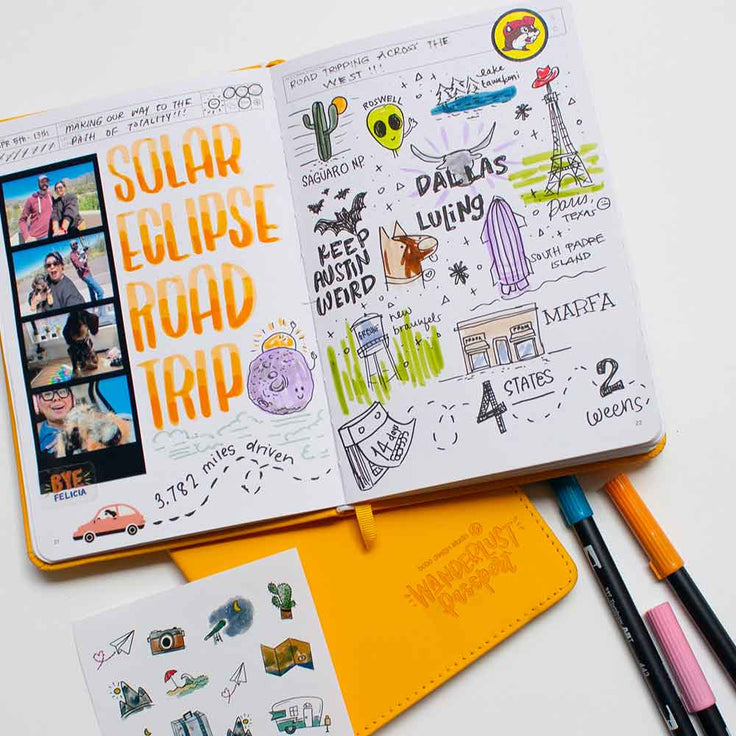 MAKING OUR WAY TO THE
PATH OF TOTALITY!!!
SOLAR
ECLIPSE
ROAD
TRIP
BYE
FELICIA
3,782 miles driven
21
ROAD TRIPPING ACROSS THE
WEST!!!
SAGUARO NP
ROSWELL
lake
tawakoni
DALLAS
LULING
paris,
TEXAS
KEEP
AUSTIN
WEIRD
SOUTH PADRE
ISLAND
new
braunfels
GRUENE
PRADA
PRADA
MARFA
14 days
4 STATES
2
weeks
22
WANDERLUST
passport